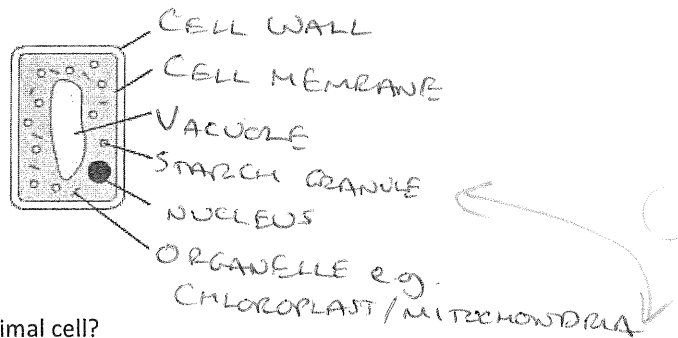 CELL WALL
CELL MEMBRANE
VACUOLE
STARCH GRANULE
NUCLEUS
ORGANELLE e.g.
CHLOROPLAST/MITOCHONDRIA
imal cell?